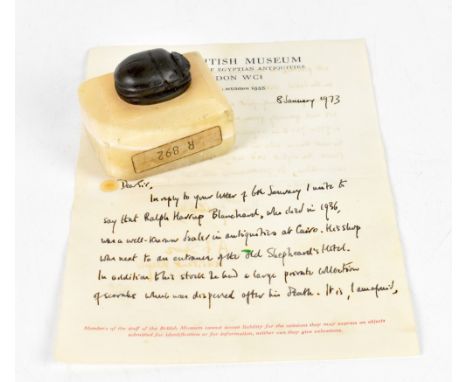 TISH MUSEUM
OF EGYPTIAN ANTIQUITIES
DON WC1
1555
8 January 1973
R 892
Dear Sir,
In reply to your letter of 6th January I write to
say that Ralph Harrup Blanchard, who died in 1936,
was a well-known dealer in antiquities at Cairo. His shop
was next to an entrance of the Old Shepheard's Hotel.
In addition to his stock he had a large private collection
of scarabs which was dispersed after his death. It is, I am afraid,
Members of the staff of the British Museum cannot accept liability for the opinions they may express on objects
submitted for identification or for information, neither can they give valuations.